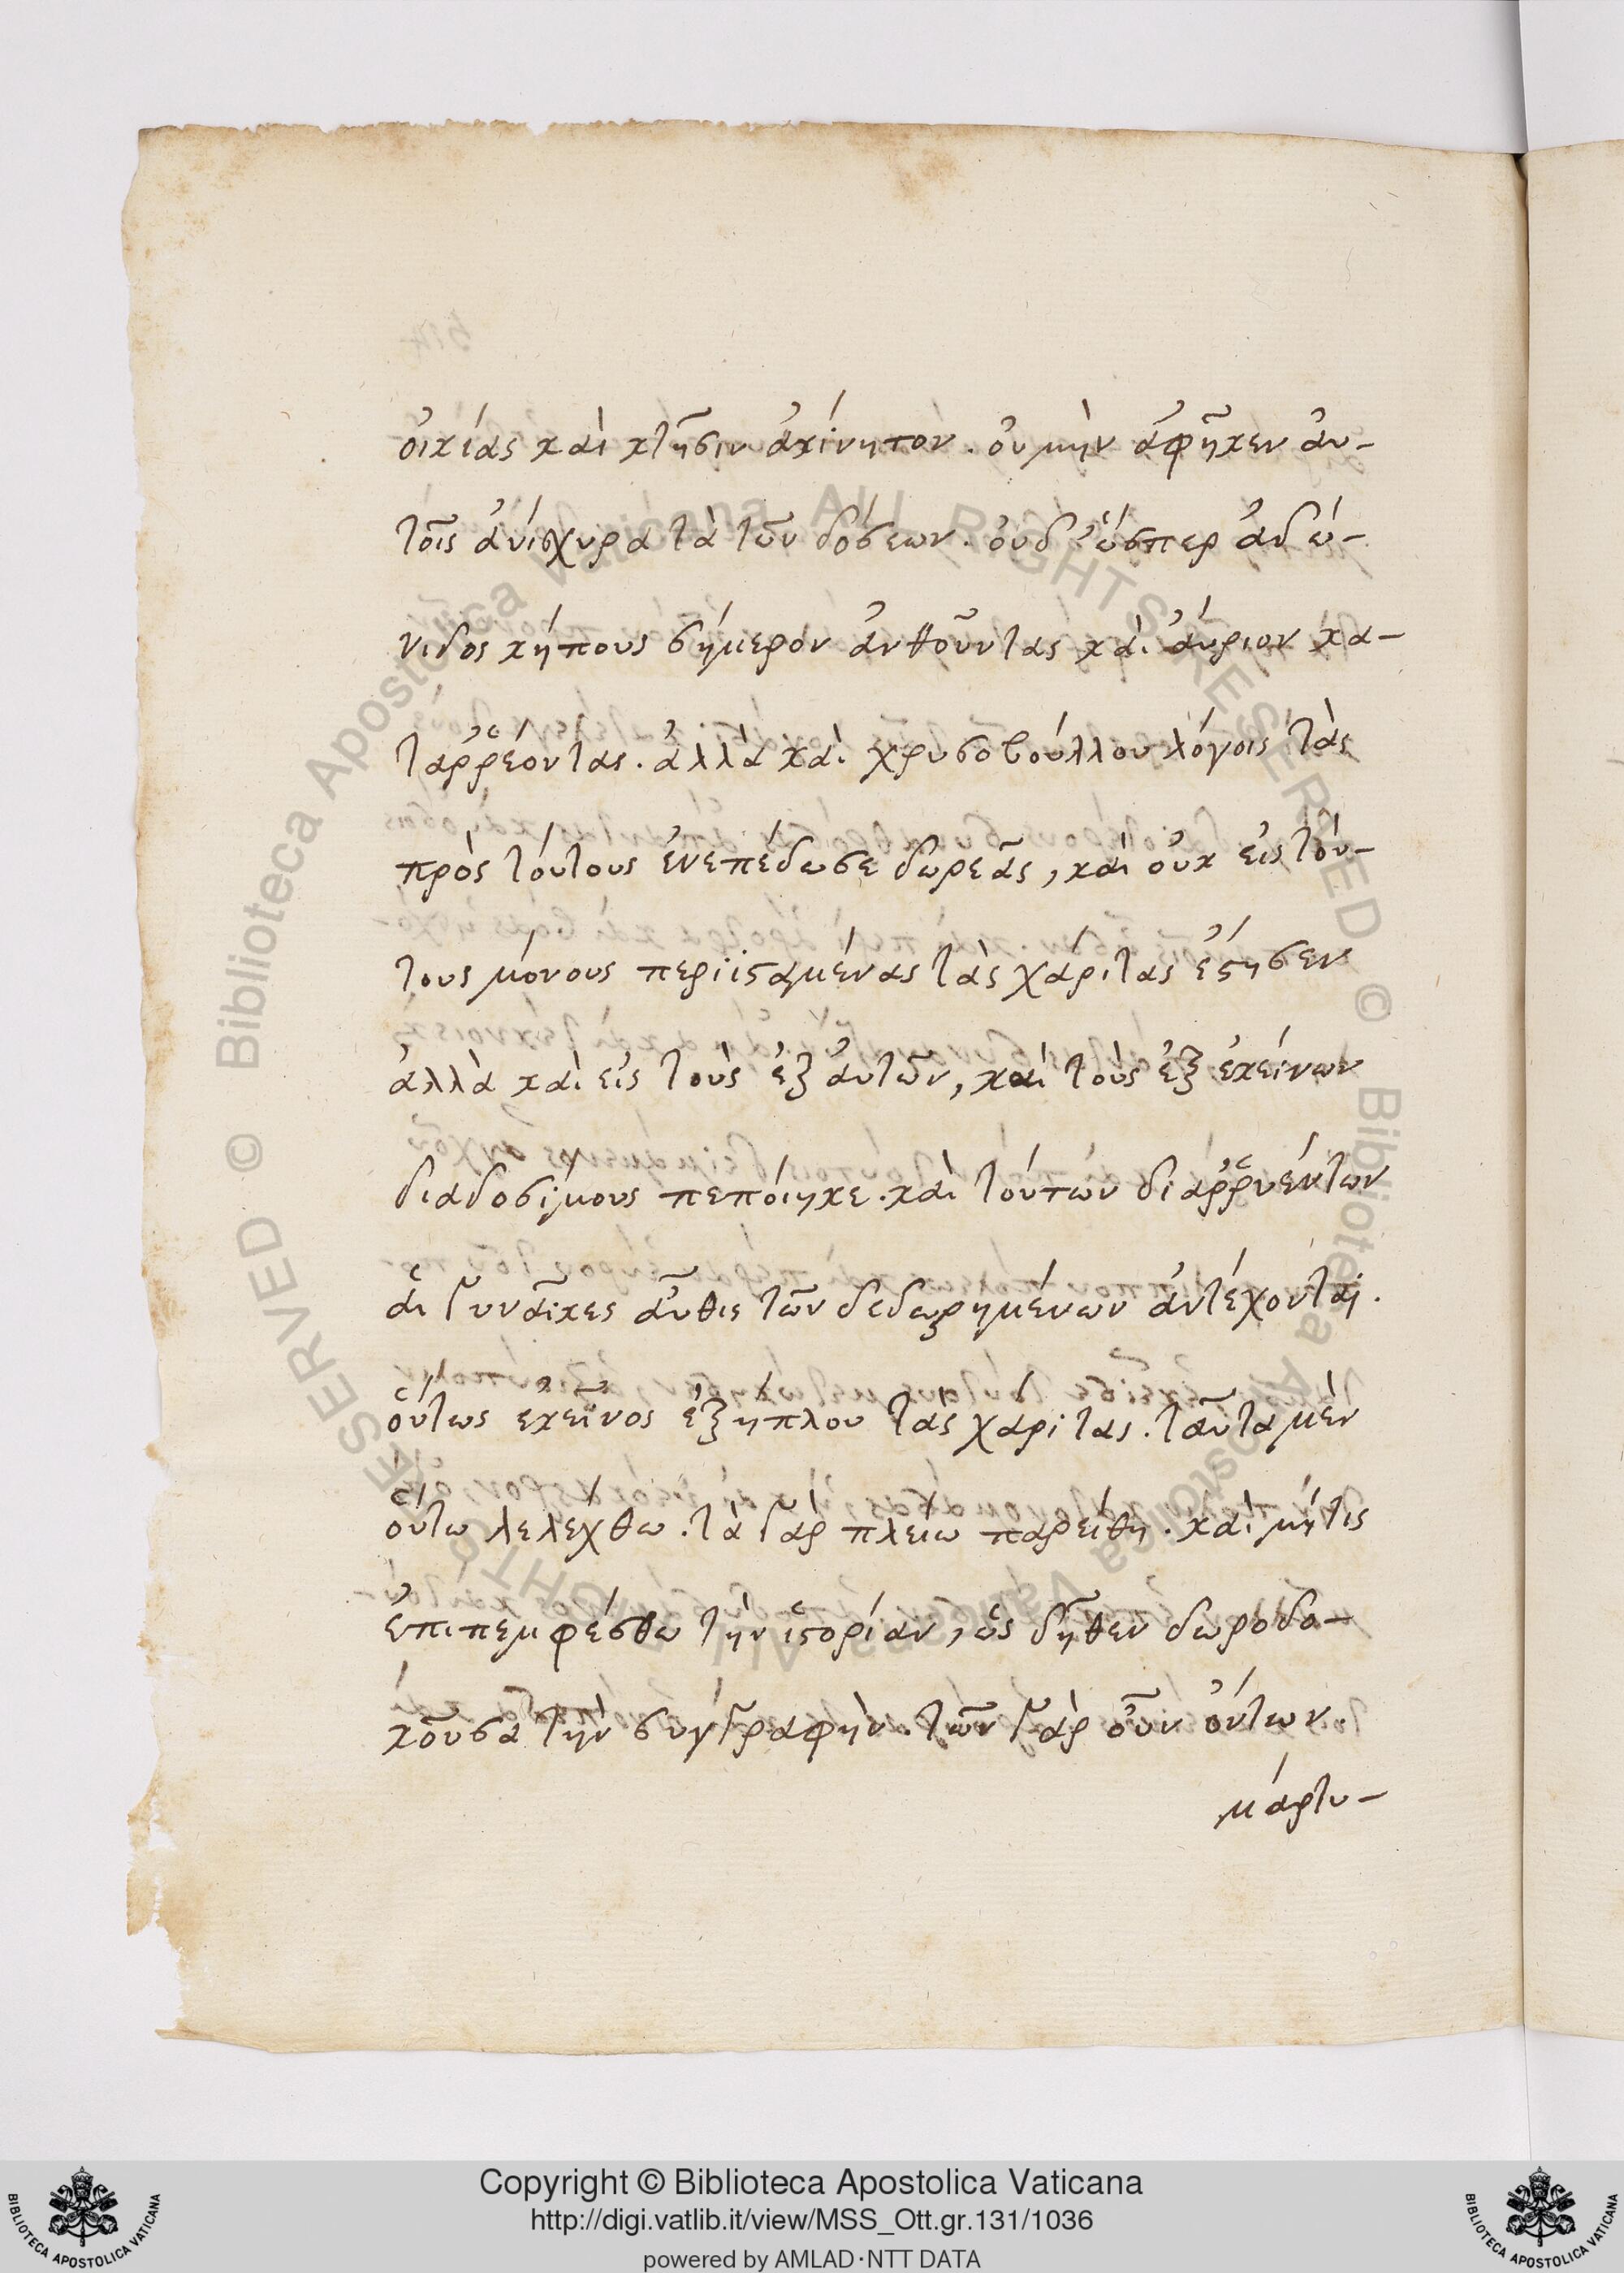 οἰκίας καὶ κτῆσιν ἀκίνητον. οὐ μὴν ἀφῆκεν αὐ-
τοῖς ἀνίσχυρα τὰ τῶν δόσεων. οὐδ' ὥσπερ ἀδώ-
νιδος κήπους σήμερον ἀνθοῦντας καὶ αὔριον κα-
ταῤῥέοντας. ἀλλὰ καὶ χρυσοβούλλου λόγοις τὰς
πρὸς τούτους ἐνεπέδωσε δωρεᾶς, καὶ οὐκ εἰς τού-
τους μόνους περιϊσταμένας τὰς χάριτας ἔστησεν
ἀλλὰ καὶ εἰς τοὺς ἐξ αὐτῶν, καὶ τοὺς ἐξ ἐκείνων
διαδοσίμους πεποίηκε. καὶ τούτων διαῤῥυέντων
αἱ γυναῖκες αὖθις τῶν δεδωρημένων ἀντέχονται.
οὕτως ἐκεῖνος ἐξήπλου τὰς χάριτας. ταῦτα μὲν
οὕτω λελέχθω. τὰ γὰρ πλείω παρείθη. καὶ μήτις
ἐπιπεμφέσθω τὴν ἱστορίαν, ὡς δῆθεν δωροδο-
κοῦσα τὴν συγγραφὴν. τῶν γὰρ οὖν ὄντων.
μάρτυ-
Copyright © Biblioteca Apostolica Vaticana
http://digi.vatlib.it/view/MSS_Ott.gr.131/1036
powered by AMLAD·NTT DATA
© Biblioteca Apostolica Vaticana ALL RIGHTS RESERVED © Biblioteca Apostolica Vaticana ALL RIGHTS RESERVED
BIBLIOTECA APOSTOLICA VATICANA
BIBLIOTECA APOSTOLICA VATICANA